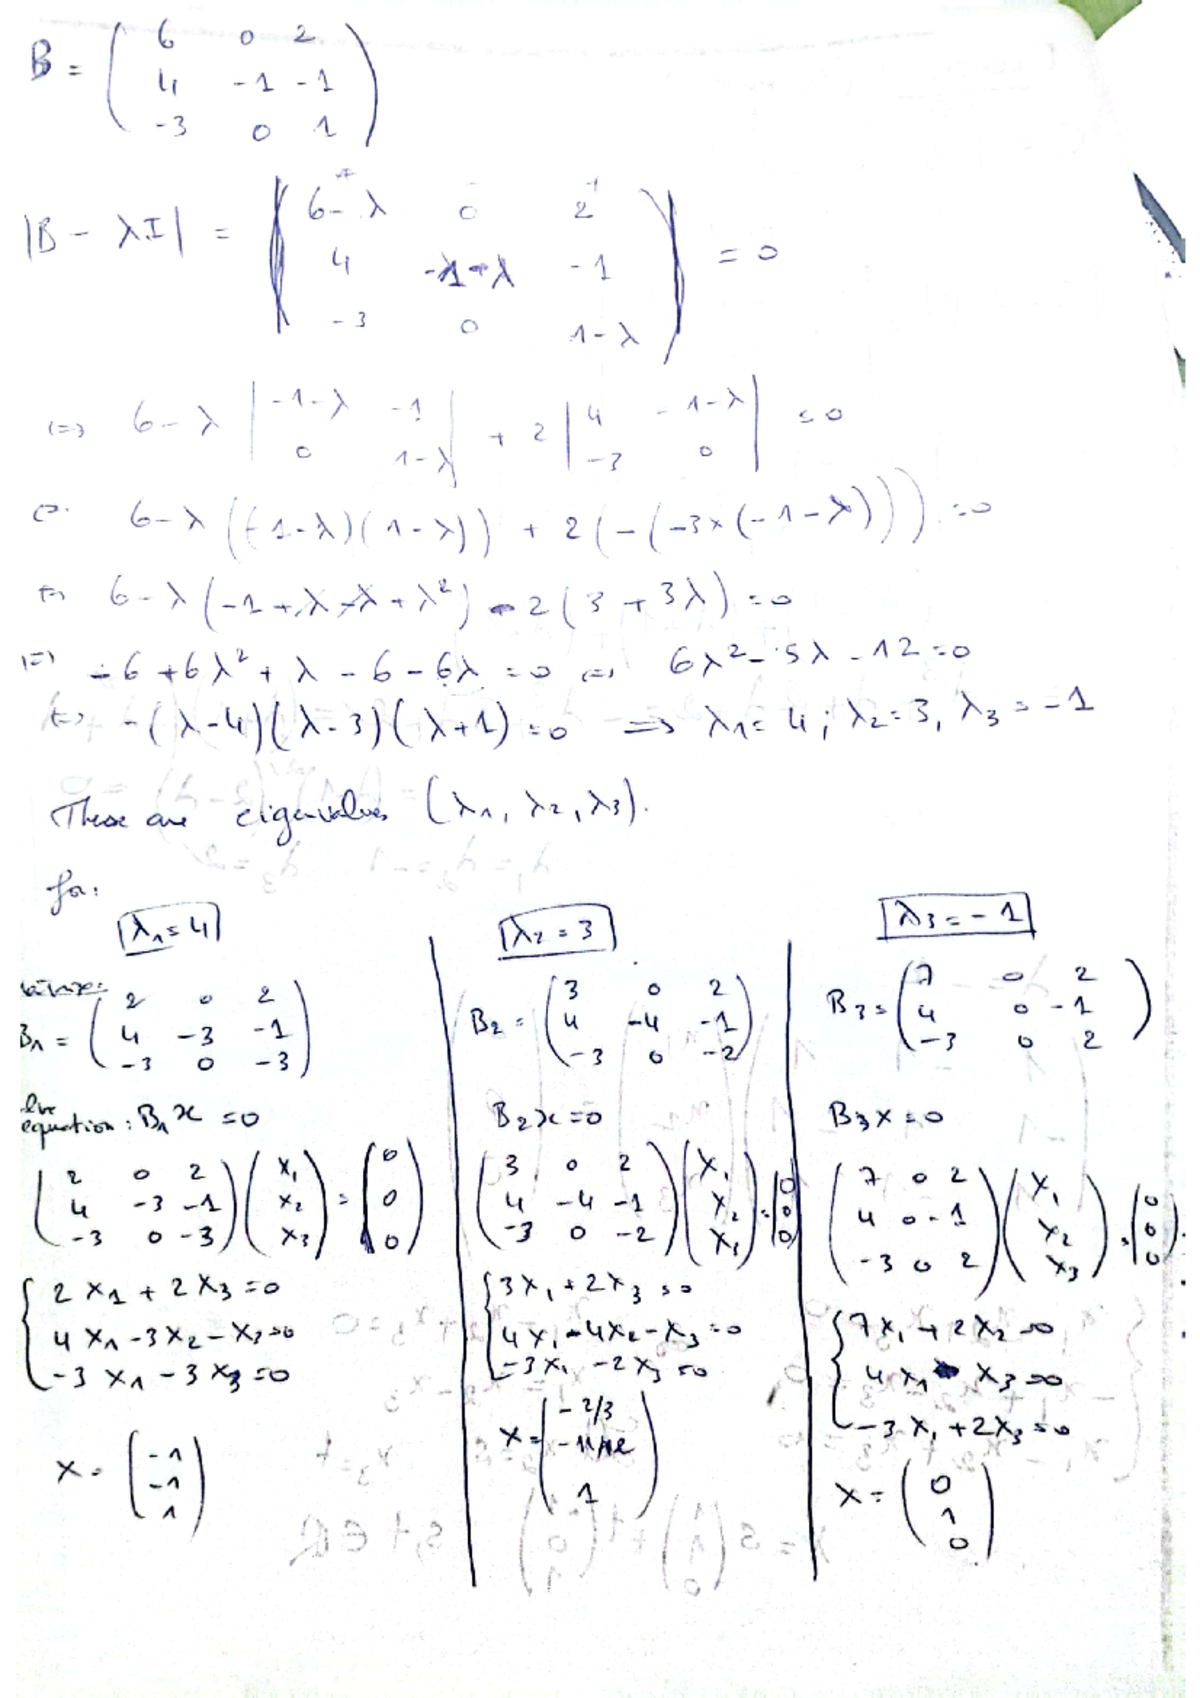 B = ( 6 0 2
4 -1 -1
-3 0 1 )
|B - λI| = | 6-λ 0 2
4 -1-λ -1 = 0
-3 0 1-λ |
(=) 6-λ | -1-λ -1 | + 2 | 4 -1-λ | = 0
0 1-λ -3 0
6-λ ((-1-λ)(1-λ)) + 2(-(-3×(-1-λ)))) = 0
6-λ (-1+λ-λ+λ²) - 2(3+3λ) = 0
(=) -6+6λ²+λ-6-6λ = 0 (=) 6λ²-5λ-12 = 0
(=) -(λ-4)(λ-3)(λ+1) = 0 => λ1 = 4 ; λ2 = 3, λ3 = -1
These are eigenvalues (λ1, λ2, λ3).
for:
λ1 = 4
B1 = ( 2 0 2
4 -3 -1
-3 0 -3 )
equation : B1 x = 0
( 2 0 2 ) ( x1 ) = ( 0 )
4 -3 -1 x2 0
-3 0 -3 x3 0
{ 2x1 + 2x3 = 0
4x1 - 3x2 - x3 = 0
-3x1 - 3x3 = 0
x = ( -1
-1
1 )
λ2 = 3
B2 = ( 3 0 2
4 -4 -1
-3 0 -2 )
B2 x = 0
( 3 0 2 ) ( x1 ) = ( 0 )
4 -4 -1 x2 0
-3 0 -2 x3 0
{ 3x1 + 2x3 = 0
4x1 - 4x2 - x3 = 0
-3x1 - 2x3 = 0
x = ( -2/3
-11/12
1 )
λ3 = -1
B3 = ( 7 0 2
4 0 -1
-3 0 2 )
B3 x = 0
( 7 0 2 ) ( x1 ) = ( 0 )
4 0 -1 x2 0
-3 0 2 x3 0
{ 7x1 + 2x2 = 0
4x1 - x3 = 0
-3x1 + 2x3 = 0
x = ( 0
1
0 )